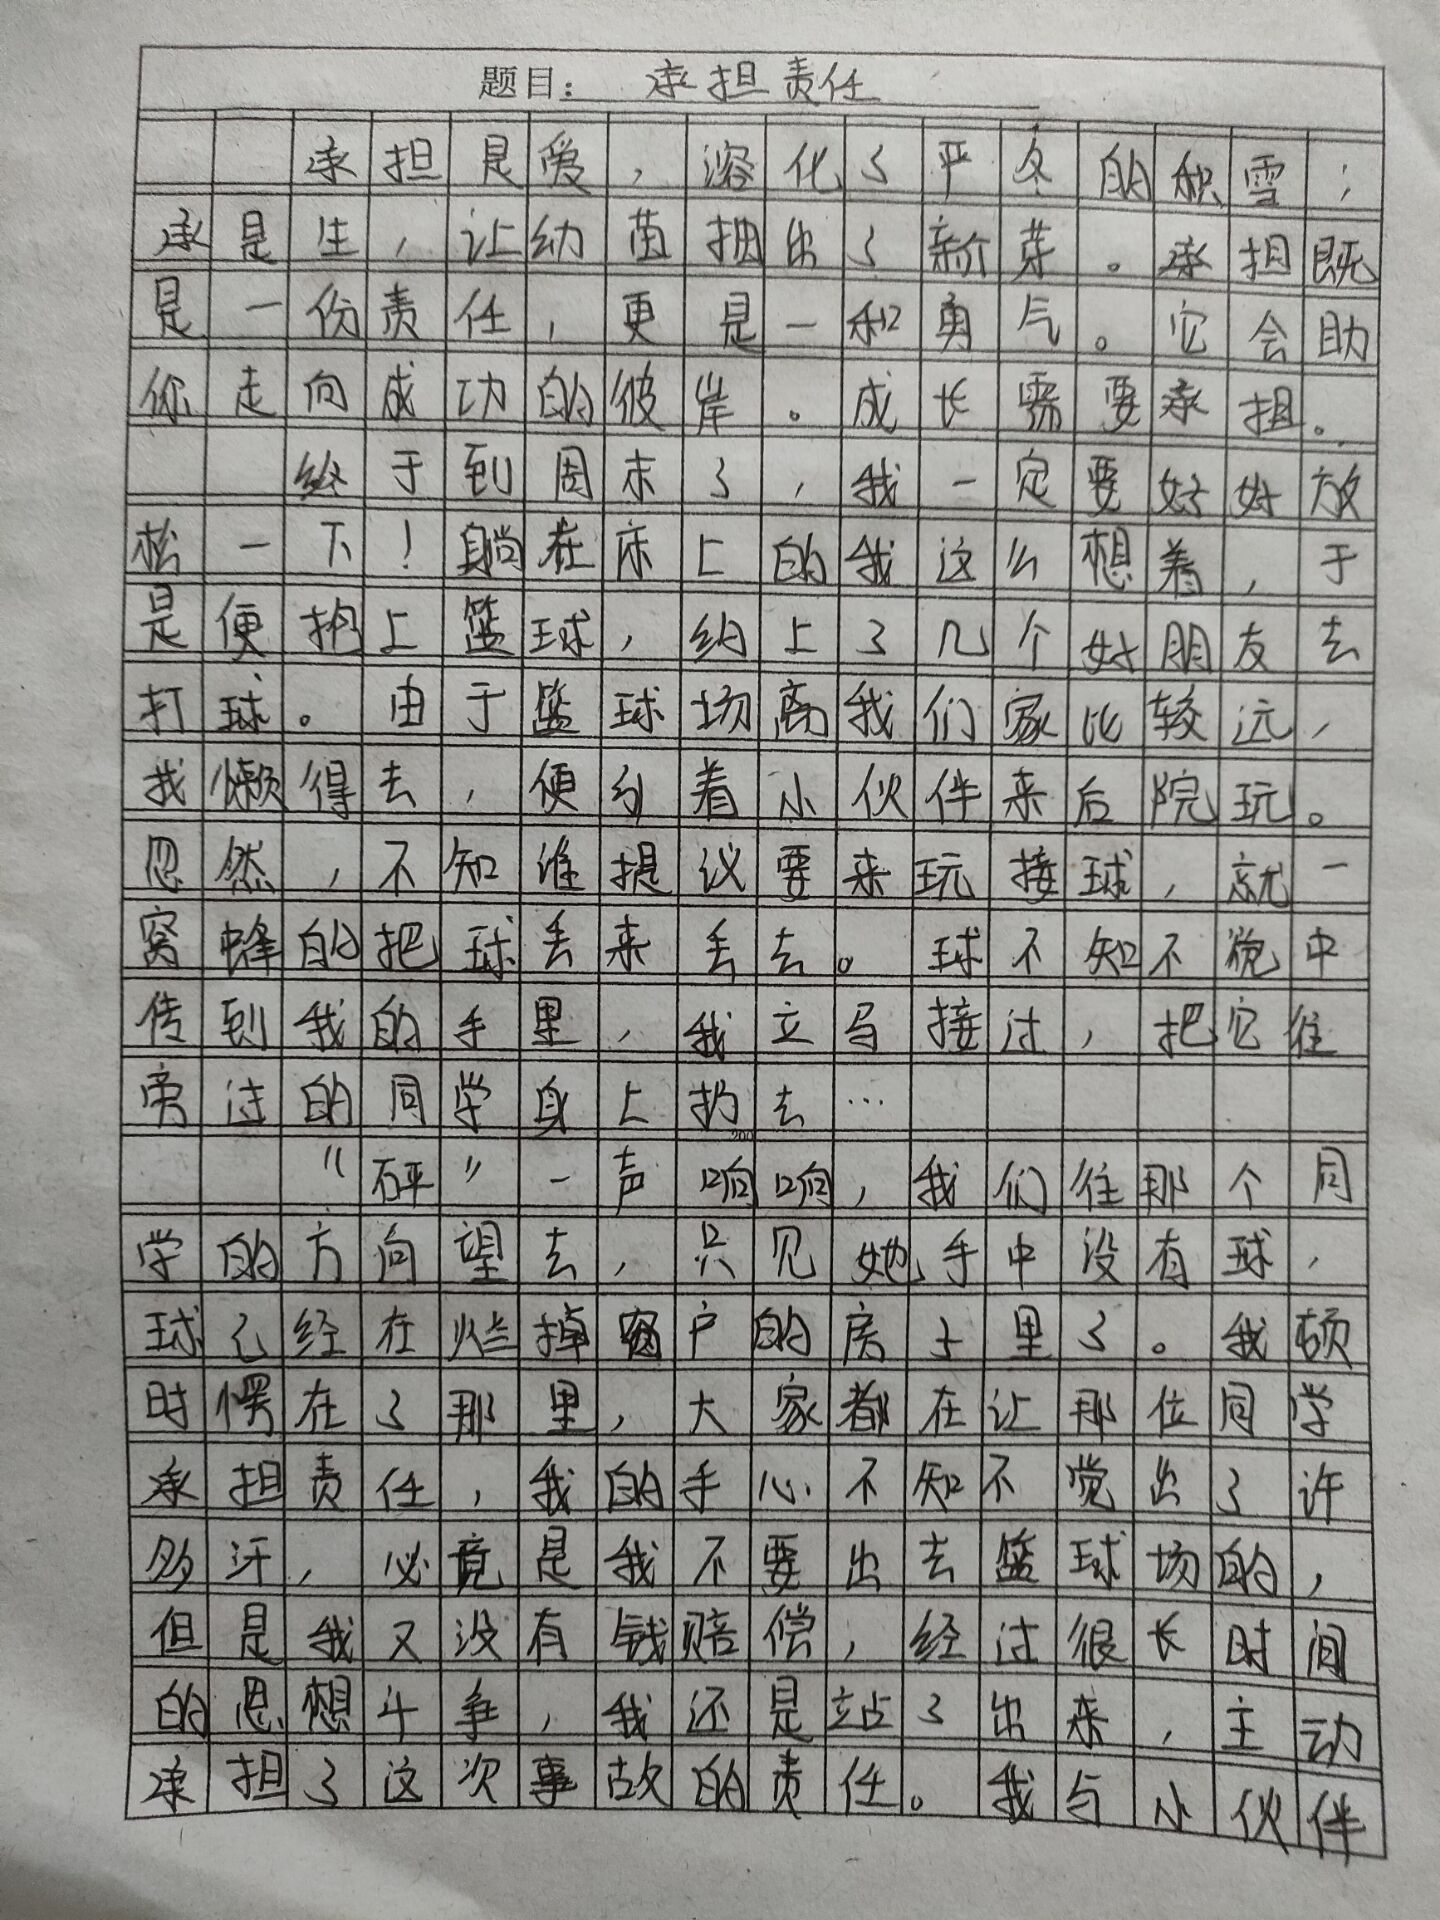 题目：承担责任
承担是爱，溶化了严冬的积雪；
承是生，让幼苗抽出了新芽。承担既
是一份责任，更是一种勇气。它会助
你走向成功的彼岸。成长需要承担。
终于到周末了，我一定要好好放
松一下！躺在床上的我这么想着，于
是便抱上篮球，约上了几个好朋友去
打球。由于篮球场离我们家比较远，
我懒得去，便引着小伙伴来后院玩。
忽然，不知谁提议要来玩接球，就一
窝蜂的把球丢来丢去。球不知不觉中
传到我的手里，我立马接过，把它往
旁过的同学身上扔去…
200
"砰"一声响响，我们往那个同
学的方向望去，只见她手中没有球，
球已经在烂掉窗户的房子里了。我顿
时愣在了那里，大家都在让那位同学
承担责任，我的手心不知不觉出了许
多汗，必竟是我不要出去篮球场的，
但是我又没有钱赔偿，经过很长时间
的思想斗争，我还是站了出来，主动
承担了这次事故的责任。我与小伙伴